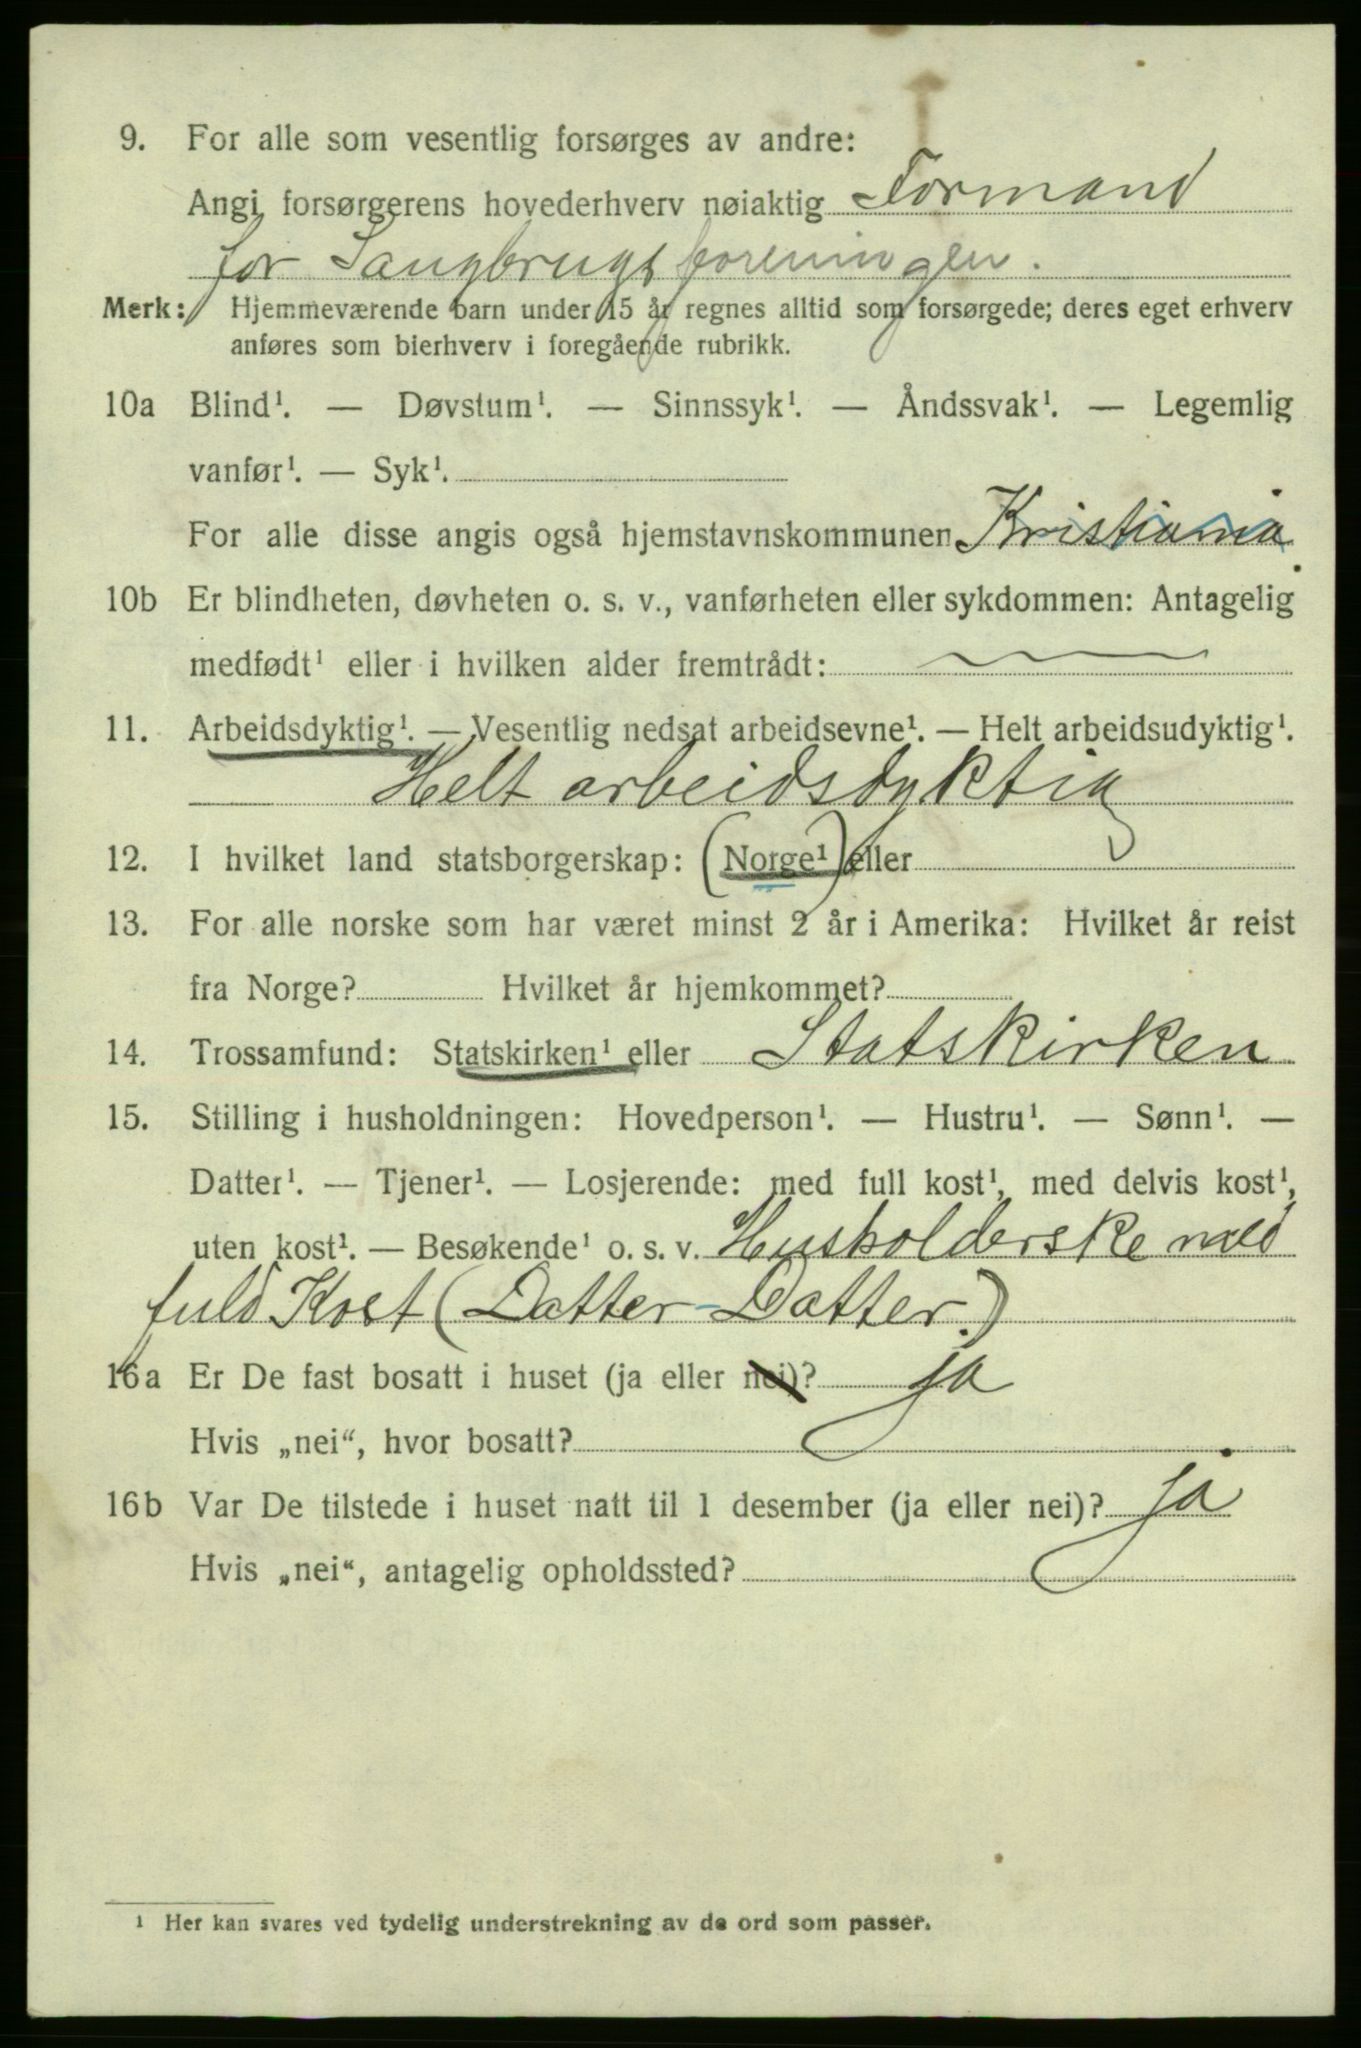 9. For alle som vesentlig forsørges av andre:
Angi forsørgerens hovederhverv nøiaktig Formand
for Saugbrugsforeningen.
Merk: Hjemmeværende barn under 15 år regnes alltid som forsørgede; deres eget erhverv
anføres som bierhverv i foregående rubrikk.
10a Blind¹. — Døvstum¹. — Sinnssyk¹. — Åndssvak¹. — Legemlig
vanfør¹. — Syk¹.
For alle disse angis også hjemstavnskommunen Kristiania
10b Er blindheten, døvheten o. s. v., vanførheten eller sykdommen: Antagelig
medfødt¹ eller i hvilken alder fremtrådt:
11. Arbeidsdyktig¹. — Vesentlig nedsat arbeidsevne¹. — Helt arbeidsudyktig¹.
Helt arbeidsdyktig
12. I hvilket land statsborgerskap: (Norge¹) eller
13. For alle norske som har været minst 2 år i Amerika: Hvilket år reist
fra Norge? Hvilket år hjemkommet?
14. Trossamfund: Statskirken¹ eller Statskirken
15. Stilling i husholdningen: Hovedperson¹. — Hustru¹. — Sønn¹. —
Datter¹. — Tjener¹. — Losjerende: med full kost¹, med delvis kost¹,
uten kost¹. — Besøkende¹ o. s. v. Husholderske med
fuld Kost (Datter-Datter.)
16a Er De fast bosatt i huset (ja eller nei)? ja
Hvis „nei“, hvor bosatt?
16b Var De tilstede i huset natt til 1 desember (ja eller nei)? ja
Hvis „nei“, antagelig opholdssted?
¹ Her kan svares ved tydelig understrekning av de ord som passer.